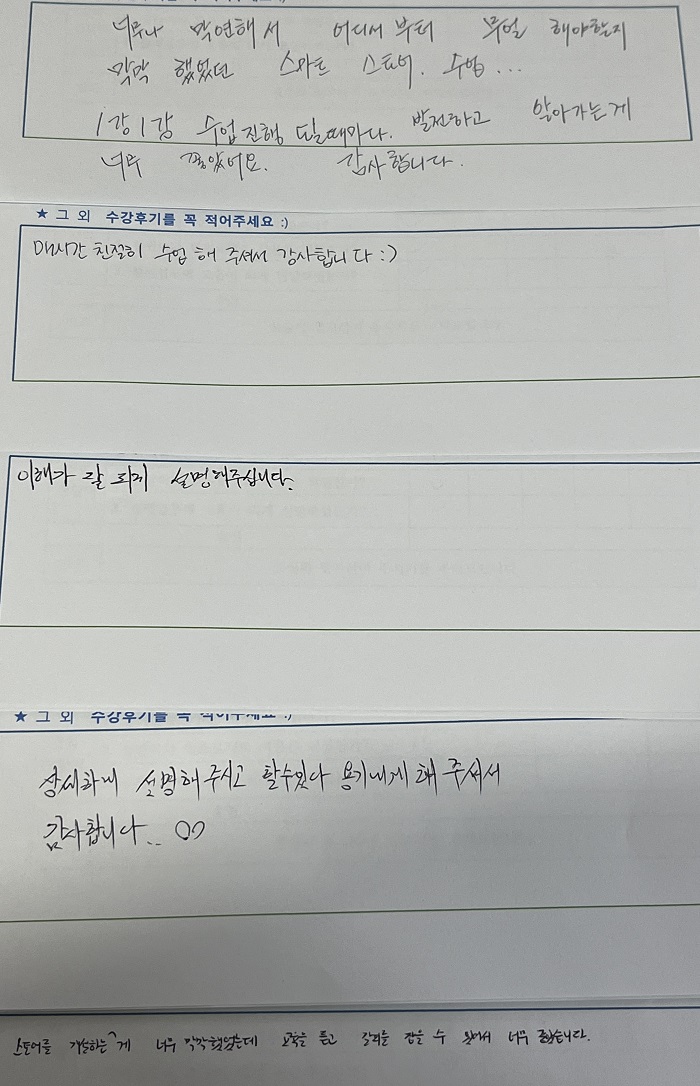 너무나 막연해서 어디서 부터 무얼 해야할지
막막 했었던 스마트 스토어. 수업...
1강 1강 수업 진행 될때마다. 발전하고 알아가는게
너무 좋았어요. 감사합니다.
★ 그 외 수강후기를 꼭 적어주세요 :)
매시간 친절히 수업 해 주셔서 감사합니다 :)
이해가 잘 되게 설명해주십니다.
★ 그 외 수강후기를 꼭 적어주세요 :)
상세하게 설명해 주시고 할수있다 용기내게 해 주셔서
감사합니다..
스토어를 개설하는 게 너무 막막했었는데 교육을 듣고 갈피를 잡을 수 있어서 너무 좋았습니다.